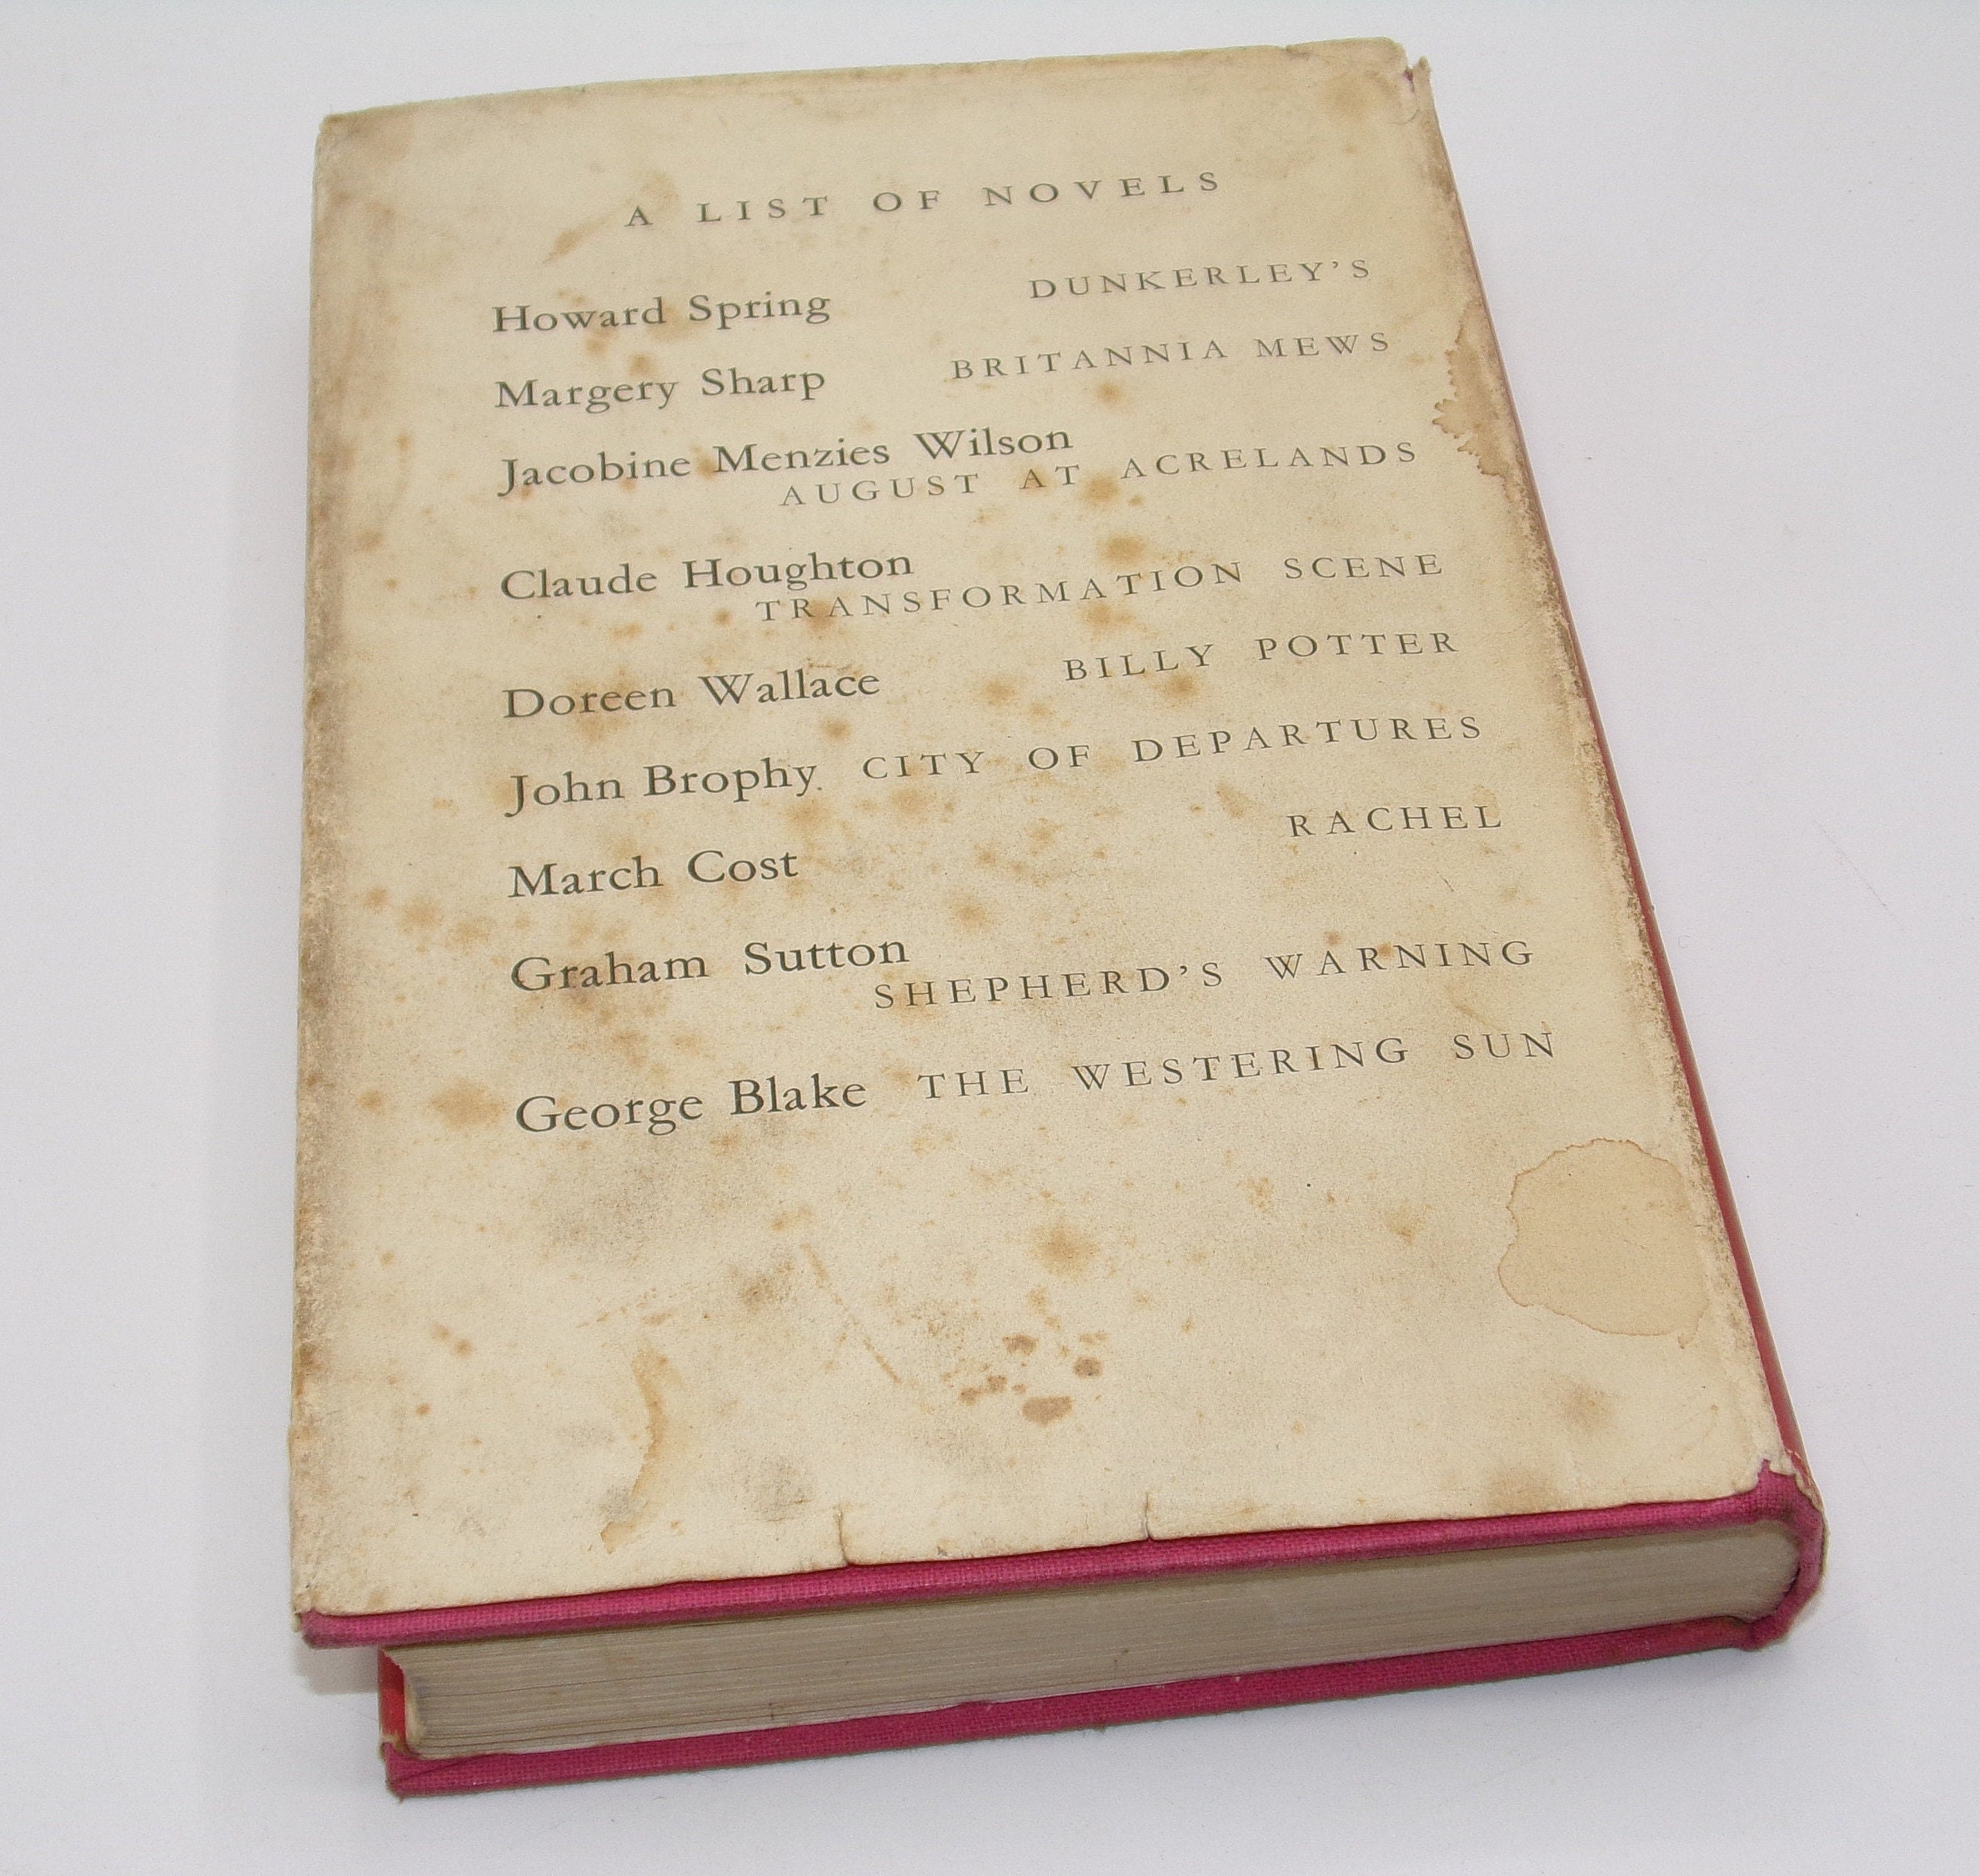 A LIST OF NOVELS
Howard Spring DUNKERLEY'S
Margery Sharp BRITANNIA MEWS
Jacobine Menzies Wilson
AUGUST AT ACRELANDS
Claude Houghton
TRANSFORMATION SCENE
Doreen Wallace BILLY POTTER
John Brophy CITY OF DEPARTURES
March Cost RACHEL
Graham Sutton
SHEPHERD'S WARNING
George Blake THE WESTERING SUN